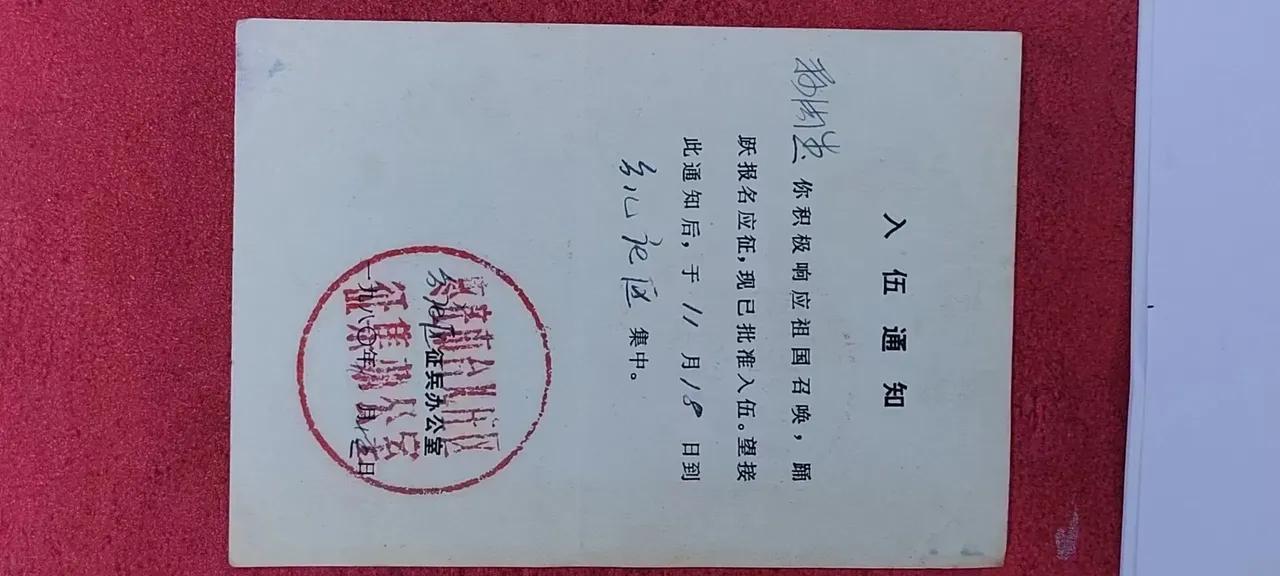 入伍通知
你积极响应祖国召唤,踊
跃报名应征,现已批准入伍。望接
此通知后,于11月18日到
区集中。
征兵办公室
一九八〇年 月 日